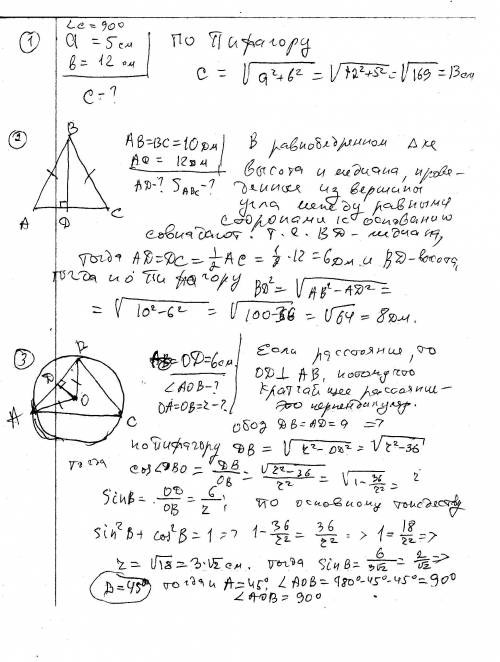 ① ∠C = 90°
a = 5 см
b = 12 см
C - ?
По Пифагору
C = √a²+b² = √12²+5² = √169 = 13 см
② B
A D C
AB=BC=10 дм
AC = 12 дм
AD-? S ABC - ?
В равнобедренном Δ-ке
высота и медиана, прове-
денные из вершины
угла между равными
сторонами к основанию
совпадают. т.е. BD - медиана,
тогда AD=DC=½AC=½·12=6дм и BD-высота,
тогда по Пифагору BD²=√AB²-AD²=
=√10²-6² = √100-36 = √64 = 8 дм.
③ B
D
O
A C
OD=6см.
∠AOB-?
OA=OB=r-?
Если расстояние, то
OD⊥AB, потому что
кратчайшее расстояние-
это перпендикуляр.
DB=AD=a =>
по Пифагору DB = √r²-OD² = √r²-36
тогда cos∠DBO = DB/OB = √r²-36/r² = √1-36/r² =
SinB = OD/OB = 6/r; по основному тождеству
sin²B + cos²B = 1 => 1-36/r² = 36/r² => 1=18/r² =>
r = √18 = 3·√2 см. тогда sinB = 6/3√2 = 2/√2 =>
B=45° тогда и A=45°, ∠AOB=180°-45°-45°=90°
∠AOB = 90°